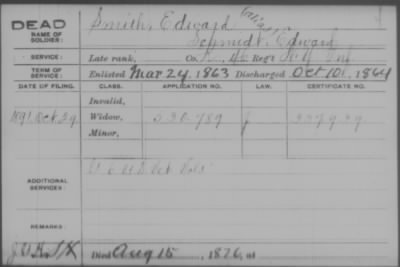 DEAD
NAME OF SOLDIER:
Smith, Edward
(alias)
Schmidt, Edward
SERVICE:
Late rank, Co. Reg't N.Y. Inf.
TERM OF SERVICE:
Enlisted Mar 24, 1863 Discharged Oct 10, 1864
DATE OF FILING. CLASS. APPLICATION NO. LAW. CERTIFICATE NO.
Invalid,
1891 Oct 29 Widow, 530.789
Minor,
ADDITIONAL SERVICES:
Vols
REMARKS:
Died Aug 15, 1876, at